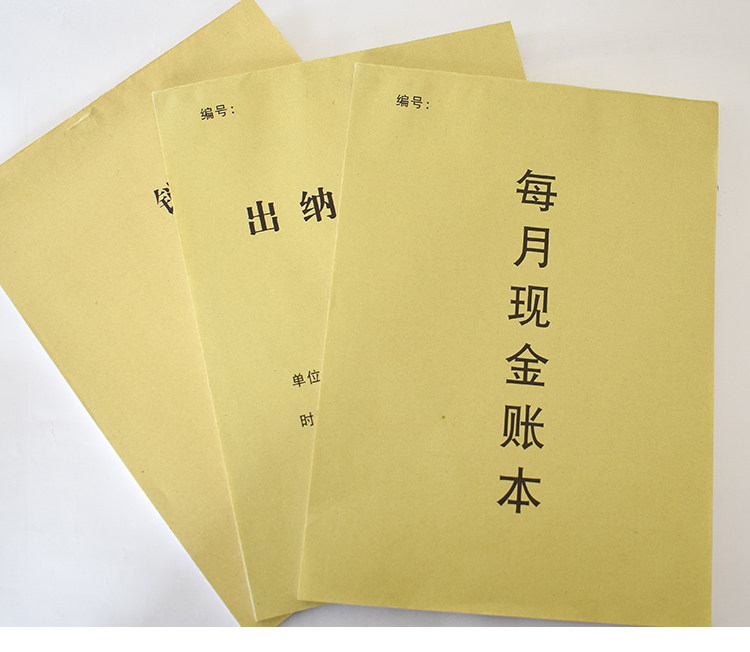 编号：
出纳
单位
时
编号：
每月现金账本